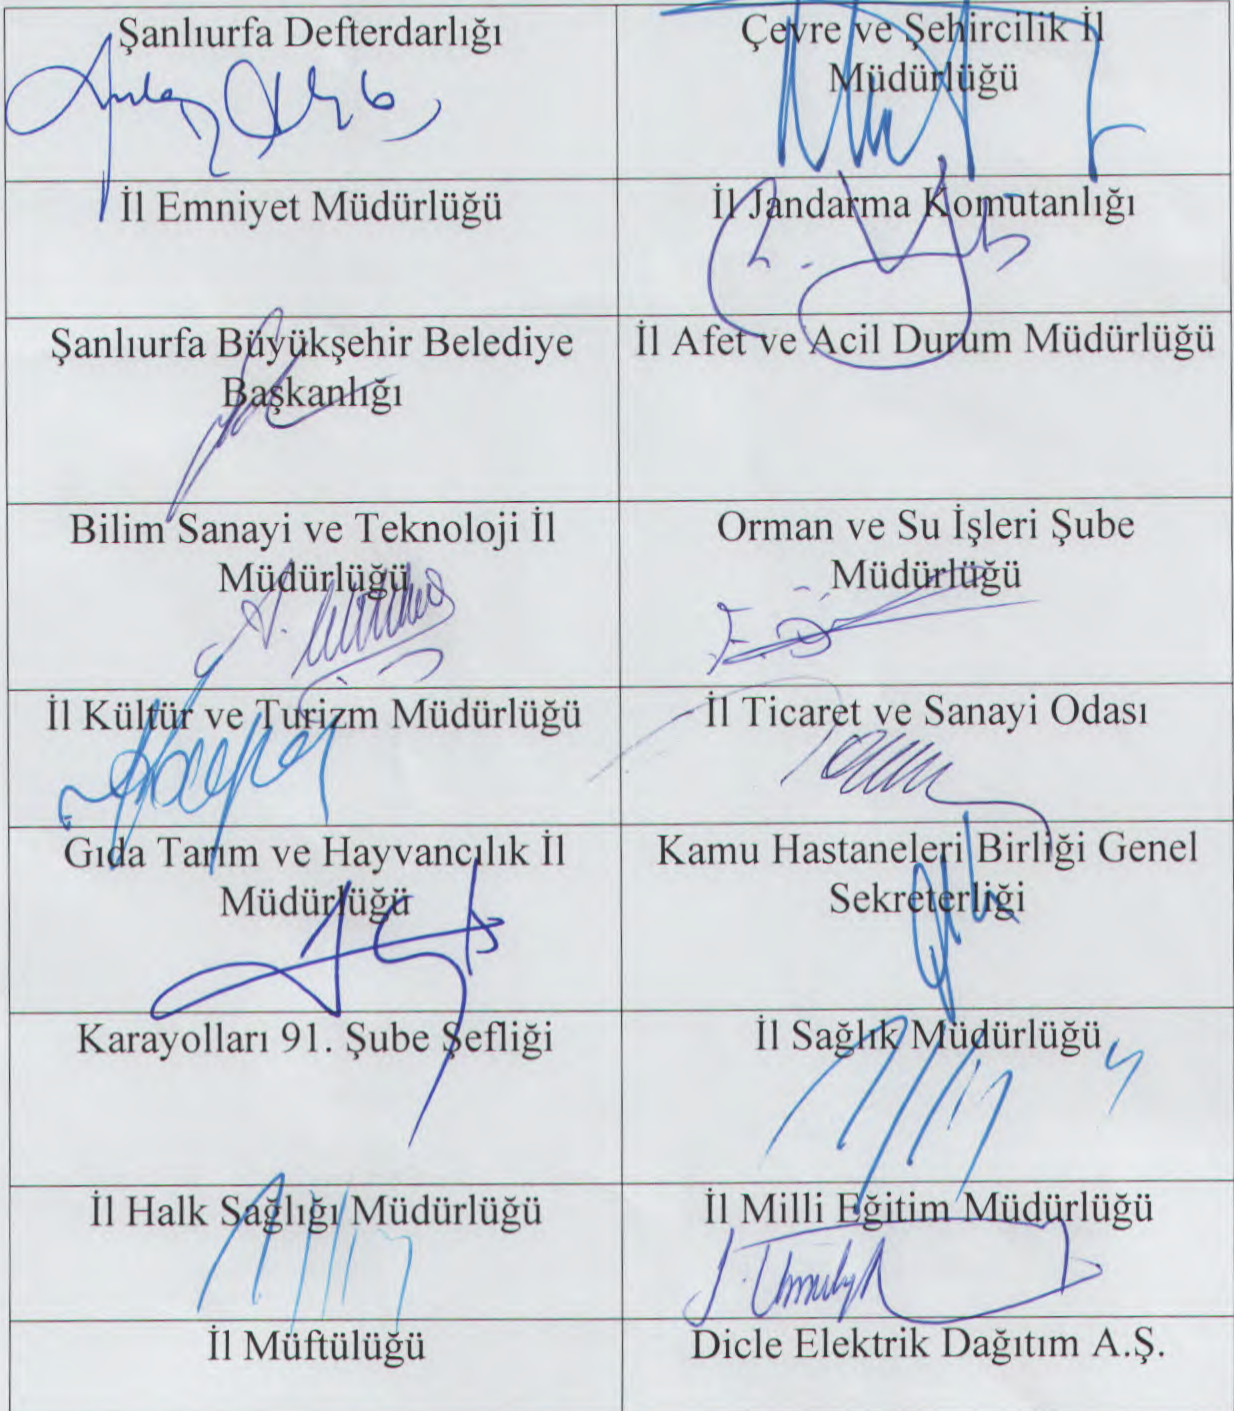 Şanlıurfa Defterdarlığı
Çevre ve Şehircilik İl
Müdürlüğü
İl Emniyet Müdürlüğü
İl Jandarma Komutanlığı
Şanlıurfa Büyükşehir Belediye
Başkanlığı
İl Afet ve Acil Durum Müdürlüğü
Bilim Sanayi ve Teknoloji İl
Müdürlüğü
Orman ve Su İşleri Şube
Müdürlüğü
İl Kültür ve Turizm Müdürlüğü
İl Ticaret ve Sanayi Odası
Gıda Tarım ve Hayvancılık İl
Müdürlüğü
Kamu Hastaneleri Birliği Genel
Sekreterliği
Karayolları 91. Şube Şefliği
İl Sağlık Müdürlüğü
İl Halk Sağlığı Müdürlüğü
İl Milli Eğitim Müdürlüğü
İl Müftülüğü
Dicle Elektrik Dağıtım A.Ş.